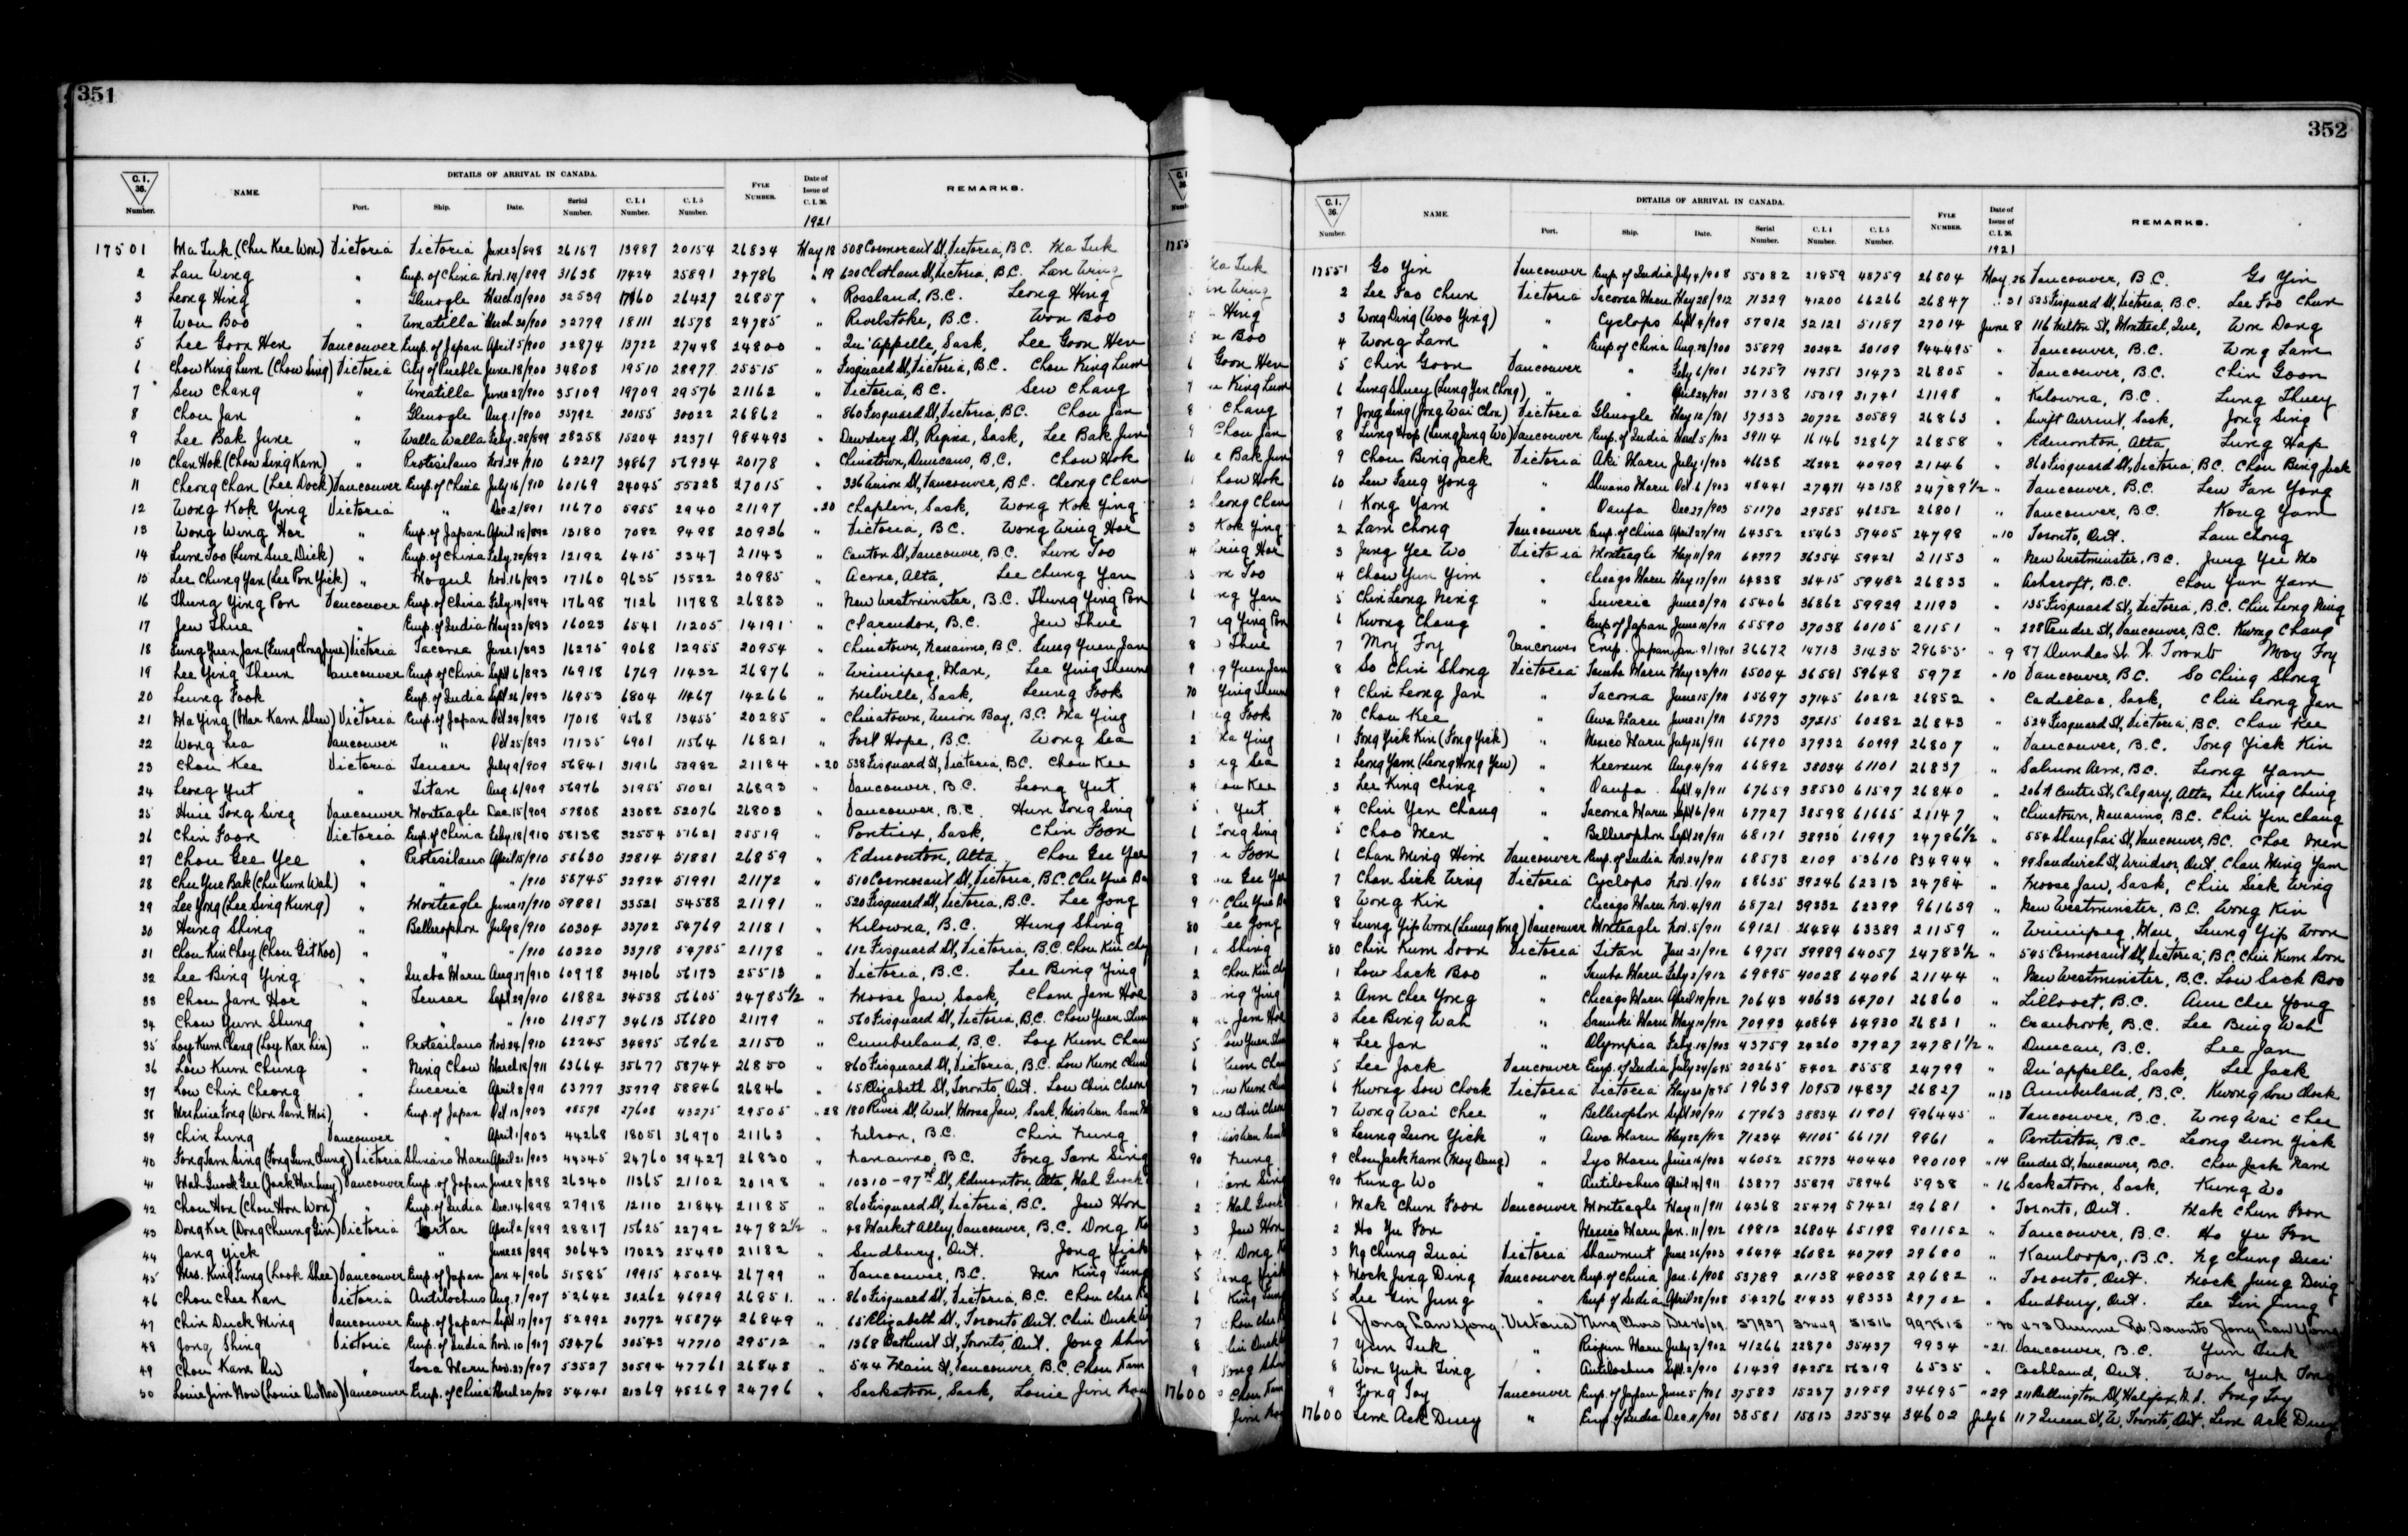 351
C. I. 36. Number. NAME. DETAILS OF ARRIVAL IN CANADA. Port. Ship. Date. Serial Number. C. I. 4 Number. C. I. 5 Number. FYLE NUMBER. Date of Issue of C. I. 36. 1921 REMARKS.
17501 Ma Tuk (Chu Kee Won) Victoria Victoria June 3/898 26167 13987 20154 26834 May 18 508 Cormorant St, Victoria, B.C. Ma Tuk
2 Lau Wing " Emp. of China Nov. 14/899 31638 17424 25891 24786 " 19 Victoria, B.C. Lau Wing
3 Leong Hing " Glenogle March 13/900 32539 26427 26857 " Rossland, B.C. Leong Hing
4 Won Boo " Umatilla March 30/900 32779 18111 26578 24785 " Revelstoke, B.C. Won Boo
5 Lee Goon Hen Vancouver Emp. of Japan April 5/900 32874 13722 27448 24800 " Qu'Appelle, Sask, Lee Goon Hen
6 Chow King Lum (Chow Sing) Victoria City of Puebla June 18/900 34808 19510 28977 25515 " Fisguard St, Victoria, B.C. Chow King Lum
7 Sew Chang " Umatilla June 27/900 35109 19709 29576 21162 " Victoria, B.C. Sew Chang
8 Chou Jan " Glenogle Aug. 1/900 35792 20155 30022 26862 " 860 Fisguard St, Victoria, B.C. Chou Jan
9 Lee Bak June " Walla Walla Feby. 28/899 28258 15204 22371 984493 " Dewdney St, Regina, Sask, Lee Bak June
10 Chow Hok (Chow Sing Kam) " Protesilaus Nov. 24/910 62217 34867 56934 20178 " Chinatown, Duncans, B.C. Chow Hok
11 Cheong Chan (Lee Dock) Vancouver Emp. of China July 16/910 60169 24045 55328 27015 " 336 Union St, Vancouver, B.C. Cheong Chan
12 Wong Kok Ying Victoria " Dec. 2/891 11670 5955 2940 21197 " 20 Chaplin, Sask, Wong Kok Ying
13 Wong Wing Hor " Emp. of Japan April 18/892 13180 7082 9498 20936 " Victoria, B.C. Wong Wing Hor
14 Lum Too (Lum Sue Dick) " Emp. of China Feby. 22/892 12192 6415 3347 21143 " Canton St, Vancouver, B.C. Lum Too
15 Lee Chung Yan (Lee Pon Yick) " Mogul Nov. 16/893 17160 9635 13522 20985 " Acme, Alta, Lee Chung Yan
16 Thung Ying Pon Vancouver Emp. of China Feby. 14/894 17698 7126 11788 26883 " New Westminster, B.C. Thung Ying Pon
17 Jew Thue " Emp. of India May 23/893 16023 6541 11205 14191 " Clarendon, B.C. Jew Thue
18 Lung Yuen Jan Victoria Tacoma June 1/893 16275 9068 12955 20954 " Chinatown, Nanaimo, B.C. Lung Yuen Jan
19 Lee Ying Theun Vancouver Emp. of China Sept 6/893 16918 6769 11432 26876 " Winnipeg, Man, Lee Ying Theun
20 Leung Fook " Emp. of India Sept 26/893 16953 6804 11467 14266 " Melville, Sask, Leung Fook
21 Ma Ying (Mar Kam Shew) Victoria Emp. of Japan Oct 24/893 17018 9568 13455 20285 " Chinatown, Union Bay, B.C. Ma Ying
22 Wong Sea Vancouver " Oct 25/893 17135 6901 11564 16821 " Fort Hope, B.C. Wong Sea
23 Chou Kee Victoria Teucer July 9/909 56841 31916 50982 21184 " 20 538 Fisguard St, Victoria, B.C. Chou Kee
24 Leong Yut " Titan Aug. 6/909 56976 31955 51021 26893 " Vancouver, B.C. Leong Yut
25 Hum Tong Sing Vancouver Monteagle Dec. 15/909 57808 23082 52076 26803 " Vancouver, B.C. Hum Tong Sing
26 Chin Foon Victoria Emp. of China Feby. 18/910 58138 32554 51621 25519 " Ponteix, Sask, Chin Foon
27 Chou Gee Yee " Protesilaus April 15/910 58630 32814 51881 26859 " Edmonton, Alta, Chou Gee Yee
28 Chu Yue Bak (Chu Kum Wah) " " " /910 58745 32924 51991 21172 " 510 Cormorant St, Victoria, B.C. Chu Yue Ba
29 Lee Yong (Lee Sing Kung) " Monteagle June 17/910 59881 33521 54588 21191 " 520 Fisguard St, Victoria, B.C. Lee Yong
30 Hung Shing " Bellerophon July 8/910 60304 33702 54769 21181 " Kelowna, B.C. Hung Shing
31 Chou Kin Choy (Chou Git Koo) " " " /910 60320 33718 54785 21178 " 612 Fisguard St, Victoria, B.C. Chou Kin Cho
32 Lee Bing Ying " Inaba Maru Aug. 17/910 60978 34106 56173 25513 " Victoria, B.C. Lee Bing Ying
33 Chou Jam Hor " Teucer Sept 29/910 61882 34538 56605 24785 1/2 " Moose Jaw, Sask, Chou Jam Hor
34 Chow Yum Shung " " " /910 61957 34613 56680 21179 " 560 Fisguard St, Victoria, B.C. Chow Yuen Shun
35 Loy Kum Chang (Loy Kar Lin) " Protesilaus Nov. 24/910 62245 34895 56962 21150 " Cumberland, B.C. Loy Kum Chan
36 Low Kum Chung " Ning Chow March 18/911 63664 35677 58744 26850 " 860 Fisguard St, Victoria, B.C. Low Kum Chun
37 Low Chin Cheong " Luceric April 8/911 63777 35779 58846 26846 " 65 Elizabeth St, Toronto, Ont. Low Chin Cheon
38 Mrs. (Won Sam Moi) " Emp. of Japan Oct 13/903 48578 27608 43275 29505 " 28 180 River St. West, Moose Jaw, Sask.
39 Chin Lung Vancouver " April 1/903 44268 18051 36970 21163 " Nelson, B.C. Chin Lung
40 Fong Tam Sing (Fong Lum Chung) Victoria Shinano Maru April 21/903 44345 24760 39427 26830 " Nanaimo, B.C. Fong Tam Sing
41 Mah Guock Gee Vancouver Emp. of Japan June 8/898 26340 11365 21102 20198 " 10310 - 97th St, Edmonton, Alta, Mah Guock
42 Chou Hon (Chou Hon Won) " Emp. of India Dec. 14/898 27918 12110 21844 21185 " 860 Fisguard St, Victoria, B.C. Jew Hon
43 Dong Kee (Dong Cheung Gin) Victoria Tartar April 2/899 28817 15625 22792 24782 1/2 " 48 Market Alley, Vancouver, B.C. Dong
44 Jang Yick " " June 28/899 30643 17023 25490 21182 " Sudbury, Ont. Jong Yick
45 Mrs. King Fung (Look Shee) Vancouver Emp. of Japan Jan 4/906 51585 19915 45024 26799 " Vancouver, B.C. Mrs King Fung
46 Chou Chee Kan Victoria Antilochus Aug. 7/907 52642 30262 46929 26851 " 860 Fisguard St, Victoria, B.C. Chou Chee
47 Chin Duck Ming Vancouver Emp. of Japan Sept 17/907 52992 20772 45874 26849 " 65 Elizabeth St, Toronto, Ont. Chin Duck
48 Jong Shing Victoria Emp. of India Nov. 10/907 53476 30543 47710 29512 " 1368 Bathurst St, Toronto, Ont. Jong Shin
49 Chou Kam " Tosa Maru Nov. 27/907 53527 30594 47761 26848 " 544 Main St, Vancouver, B.C. Chou Kam
50 Louie Jim Now Vancouver Emp. of China March 20/908 54141 21369 48269 24796 " Saskatoon, Sask, Louie Jim Now
352
C. I. 36. Number. NAME. DETAILS OF ARRIVAL IN CANADA. Port. Ship. Date. Serial Number. C. I. 4 Number. C. I. 5 Number. FYLE NUMBER. Date of Issue of C. I. 36. 1921 REMARKS.
17551 Go Yin Vancouver Emp. of India July 4/908 55082 21859 48759 26804 May 26 Vancouver, B.C. Go Yin
2 Lee Foo Chun Victoria Tacoma Maru May 28/912 71329 41200 66266 26847 " 31 525 Fisguard St, Victoria, B.C. Lee Foo Chun
3 Wong Ding (Woo Ying) " Cyclops Sept 4/909 57212 32121 51187 27014 June 8 116 Milton St, Montreal, Que, Won Dang
4 Wong Lam " Emp. of China Aug. 28/900 35879 20242 30109 944495 " Vancouver, B.C. Wong Lam
5 Chin Goon Vancouver " Feby 6/901 36757 14751 31473 26805 " Vancouver, B.C. Chin Goon
6 Lung Shuey (Lung Yen Chong) " " April 24/901 37138 15019 31741 21198 " Kelowna, B.C. Lung Shuey
7 Jong Sing (Jong Wai Chon) Victoria Glenogle May 12/901 37333 20722 30589 26863 " Swift Current, Sask, Jong Sing
8 Lung Hop (Lung Jung Wo) Vancouver Emp. of India March 5/902 39114 16146 32867 26858 " Edmonton, Alta, Lung Hop
9 Chou Bing Jack Victoria Aki Maru July 1/903 46638 26242 40909 21146 " 860 Fisguard St, Victoria, B.C. Chou Bing Jack
60 Lew Fang Yong " Shinano Maru Oct. 6/903 48441 27471 43138 24789 1/2 " Vancouver, B.C. Lew Fan Yong
1 Kong Yam " Oanfa Dec. 27/903 51170 29585 46252 26801 " Vancouver, B.C. Kong Yam
2 Lam Chong Vancouver Emp. of China April 27/911 64352 25463 57405 24798 " 10 Toronto, Ont. Lam Chong
3 Jung Yee Wo Victoria Monteagle May 11/911 64777 36354 59421 21153 " New Westminster, B.C. Jung Yee Mo
4 Chow Yun Yim " Chicago Maru May 17/911 64838 36415 59482 26833 " Ashcroft, B.C. Chou Yun Yam
5 Chin Leong Ning " Suveric June 8/911 65406 36862 59929 21193 " 135 Fisguard St, Victoria, B.C. Chin Leong Ning
6 Kwong Chong " Emp of Japan June 10/911 65590 37038 60105 21151 " 228 Pender St, Vancouver, B.C. Kwong Chang
7 Moy Foy Vancouver Emp. Japan Jan. 9/1901 36672 14713 31435 29655 " 9 87 Dundas St. W. Toronto Moy Foy
8 So Chin Shong Victoria Tamba Maru May 23/911 65004 36581 59648 5972 " 10 Vancouver, B.C. So Ching Shong
9 Chin Leong Jan " Tacoma June 15/911 65697 37145 60212 26852 " Cadillac, Sask, Chin Leong Jan
70 Chou Kee " Awa Maru June 21/911 65773 37215 60282 26843 " 524 Fisguard St, Victoria, B.C. Chou Kee
1 Fong Yick Kin (Fong Yick) " Mexico Maru July 26/911 66790 37932 60999 26807 " Vancouver, B.C. Fong Yick Kin
2 Leong Yam (Leong Hong Yew) " Keemun Aug. 4/911 66892 38034 61101 26837 " Salmon Arm, B.C. Leong Yam
3 Lee King Ching " Oanfa Sept 4/911 67659 38530 61597 26840 " 206 A Centre St, Calgary, Alta, Lee King Ching
4 Chin Yen Chang " Tacoma Maru Sept 6/911 67727 38598 61665 21147 " Chinatown, Nanaimo, B.C. Chin Yen Chang
5 Choo Men " Bellerophon Sept 29/911 68171 38930 61997 24786 1/2 " 554 Shanghai St, Vancouver, B.C. Choe Men
6 Chan Ming Him Vancouver Emp. of India Nov. 24/911 68573 2109 53610 834944 " 99 Sandwich St, Windsor, Ont, Chan Ming Yam
7 Chan Sick Wing Victoria Cyclops Nov. 1/911 68635 39246 62313 24784 " Moose Jaw, Sask, Chin Sick Wing
8 Wong Kin " Chicago Maru Nov. 4/911 68721 39332 62399 961639 " New Westminster, B.C. Wong Kin
9 Leung Yip Woon (Leung Kong) Vancouver Monteagle Nov. 5/911 69121 26484 63389 21159 " Winnipeg, Man, Leung Yip Woon
80 Chin Kum Soon Victoria Titan Jan 21/912 69751 39989 64057 24783 1/2 " 545 Cormorant St, Victoria, B.C. Chin Kum Soon
1 Low Sack Boo " Tamba Maru Feby. 2/912 69895 40028 64096 21144 " New Westminster, B.C. Low Sack Boo
2 Ann Chee Yong " Chicago Maru April 19/912 70643 40633 64701 26860 " Lillooet, B.C. Ann Chee Yong
3 Lee Bing Wah " Sanuki Maru May 10/912 70993 40864 64930 26831 " Cranbrook, B.C. Lee Bing Wah
4 Lee Jan " Olympia Feby. 14/903 43759 24260 37927 24781 1/2 " Duncan, B.C. Lee Jan
5 Lee Jack Vancouver Emp. of India July 24/895 20265 8402 8558 24799 " Qu'appelle, Sask, Lee Jack
6 Kwong Sou Chock Victoria Victoria May 30/895 19639 10950 14837 26827 " 13 Cumberland, B.C. Kwong Sou Chock
7 Wong Wai Chee " Bellerophon Sept 29/911 67963 38834 61901 996445 " Vancouver, B.C. Wong Wai Chee
8 Leung Quon Yick " Awa Maru May 22/912 71234 41105 66171 9961 " Penticton, B.C. Leong Quon Yick
9 Chou Jack Nam (Moy Dang) " Iyo Maru June 16/903 46052 25773 40440 990109 " 14 Pender St, Vancouver, B.C. Chou Jack Nam
90 Kung Wo " Antilochus April 14/911 63877 35879 58946 5938 " 16 Saskatoon, Sask, Kung Wo
1 Mak Chun Foon Vancouver Monteagle May 11/911 64368 25479 57421 29681 " Toronto, Ont. Mak Chun Foon
2 Ho Yu Fon " Mexico Maru Jan. 11/912 69812 26804 65198 901152 " Vancouver, B.C. Ho Yu Fon
3 Ng Chung Quai Victoria Shawmut June 26/903 46474 26082 40749 29680 " Kamloops, B.C. Ng Chung Quai
4 Mock Jung Ding Vancouver Emp. of China Jan. 6/908 53789 21138 48038 29682 " Toronto, Ont. Mock Jung Ding
5 Lee Gin Jung " Emp of India April 28/908 54276 21433 48333 29702 " Sudbury, Ont. Lee Gin Jung
6 Jong Can Yong Victoria Ning Chow Dec 16/09. 57937 51516 997815 " 20 473 Avenue Rd. Toronto Jong Can Yong
7 Yun Tuk " Riojun Maru July 2/902 41266 22870 35437 9934 " 21 Vancouver, B.C. Yun Tuk
8 Won Yuk Ting " Antilochus Sept. 2/910 61439 34252 56319 6535 " Ont. Won Yuk Tong
9 Fong Toy Vancouver Emp. of Japan June 5/901 37583 15237 31959 34695 " 29 211 Bellington St, Halifax, N.S. Fong Toy
17600 Lim Ack Duey " Emp. of India Dec. 11/901 38581 15813 32534 34602 July 6 117 Queen St, W, Toronto, Ont, Lim Ack Duey